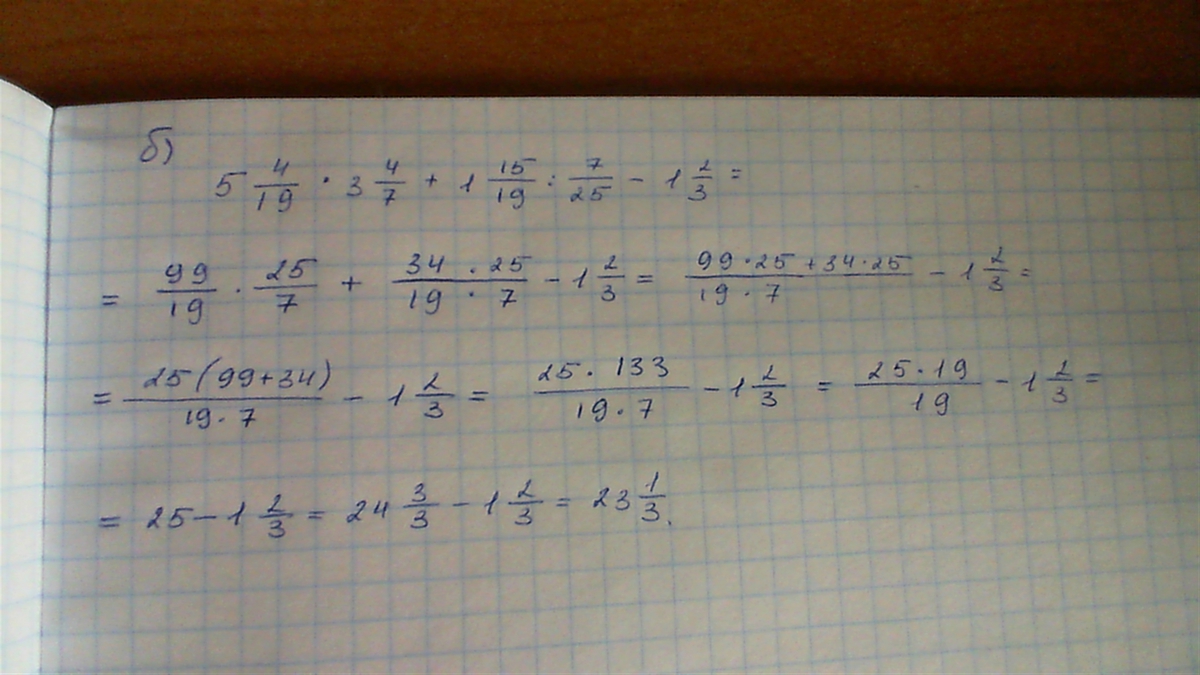 б)
5 4/19 · 3 4/7 + 1 15/19 : 7/25 - 1 2/3 =
= 99/19 · 25/7 + 34 · 25/19 · 7 - 1 2/3 = 99·25+34·25/19·7 - 1 2/3 =
= 25(99+34)/19·7 - 1 2/3 = 25·133/19·7 - 1 2/3 = 25·19/19 - 1 2/3 =
= 25 - 1 2/3 = 24 3/3 - 1 2/3 = 23 1/3.